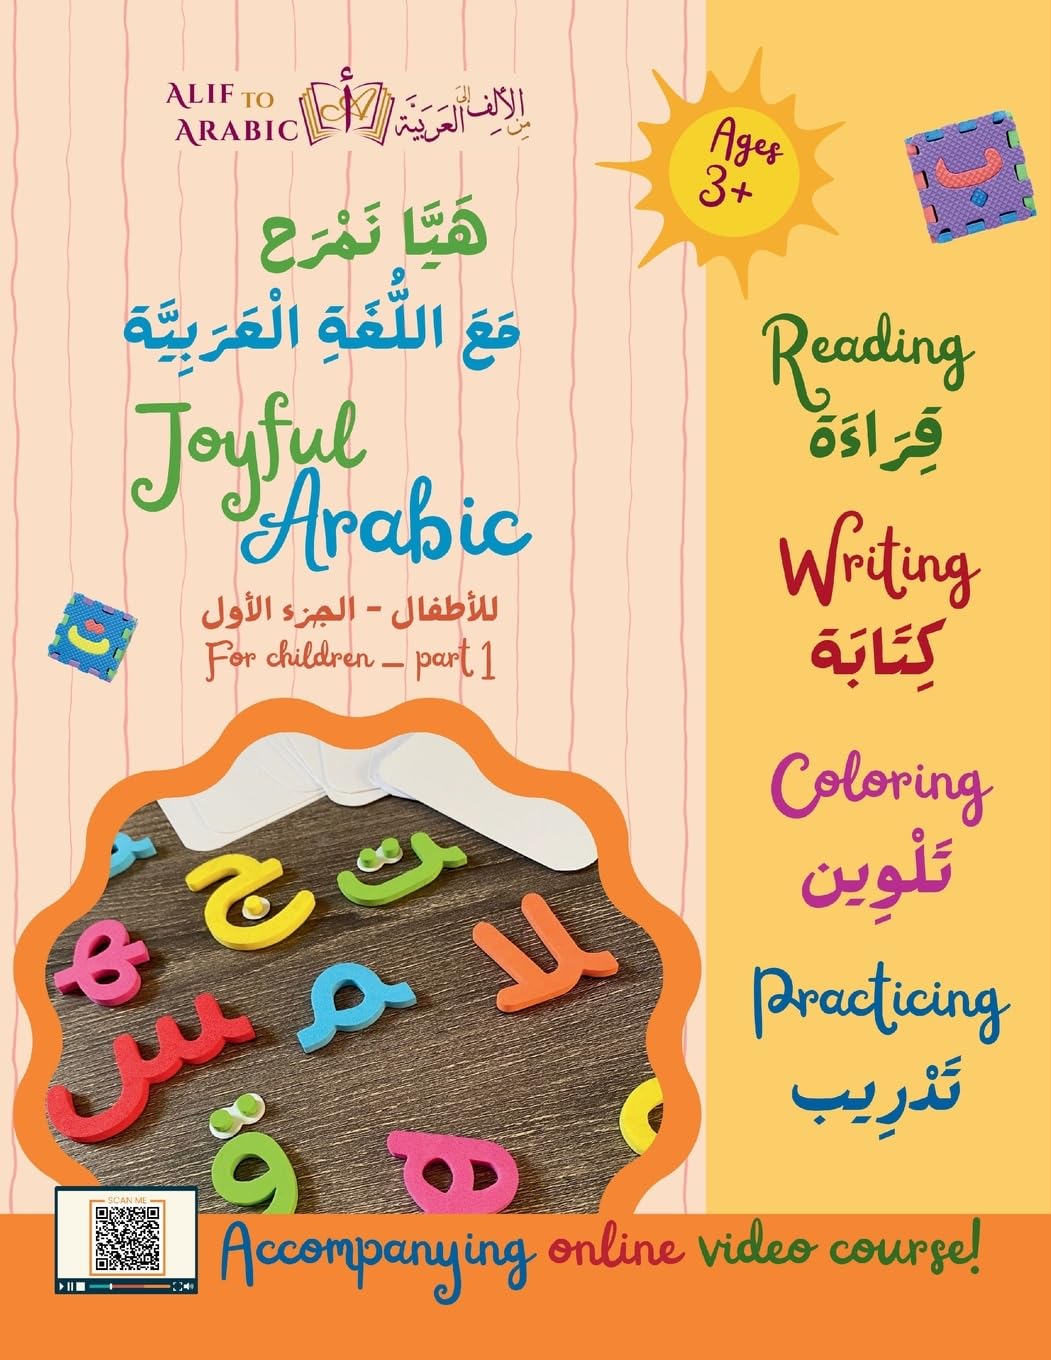 ALIF TO
ARABIC
من الألف إلى العَرَبَيَّة
Ages
3+
هَيَّا نَمْرَح
مَعَ اللُّغَةِ الْعَرَبِيَّة
Joyful
Arabic
للأطفال - الجزء الأول
For children – part 1
Reading
قِرَاءَة
Writing
كِتَابَة
Coloring
تَلْوِين
Practicing
تَدْرِيب
ب
ت
ج
ت
ه
س
م
لا
ق
ه
SCAN ME
Accompanying online video course!